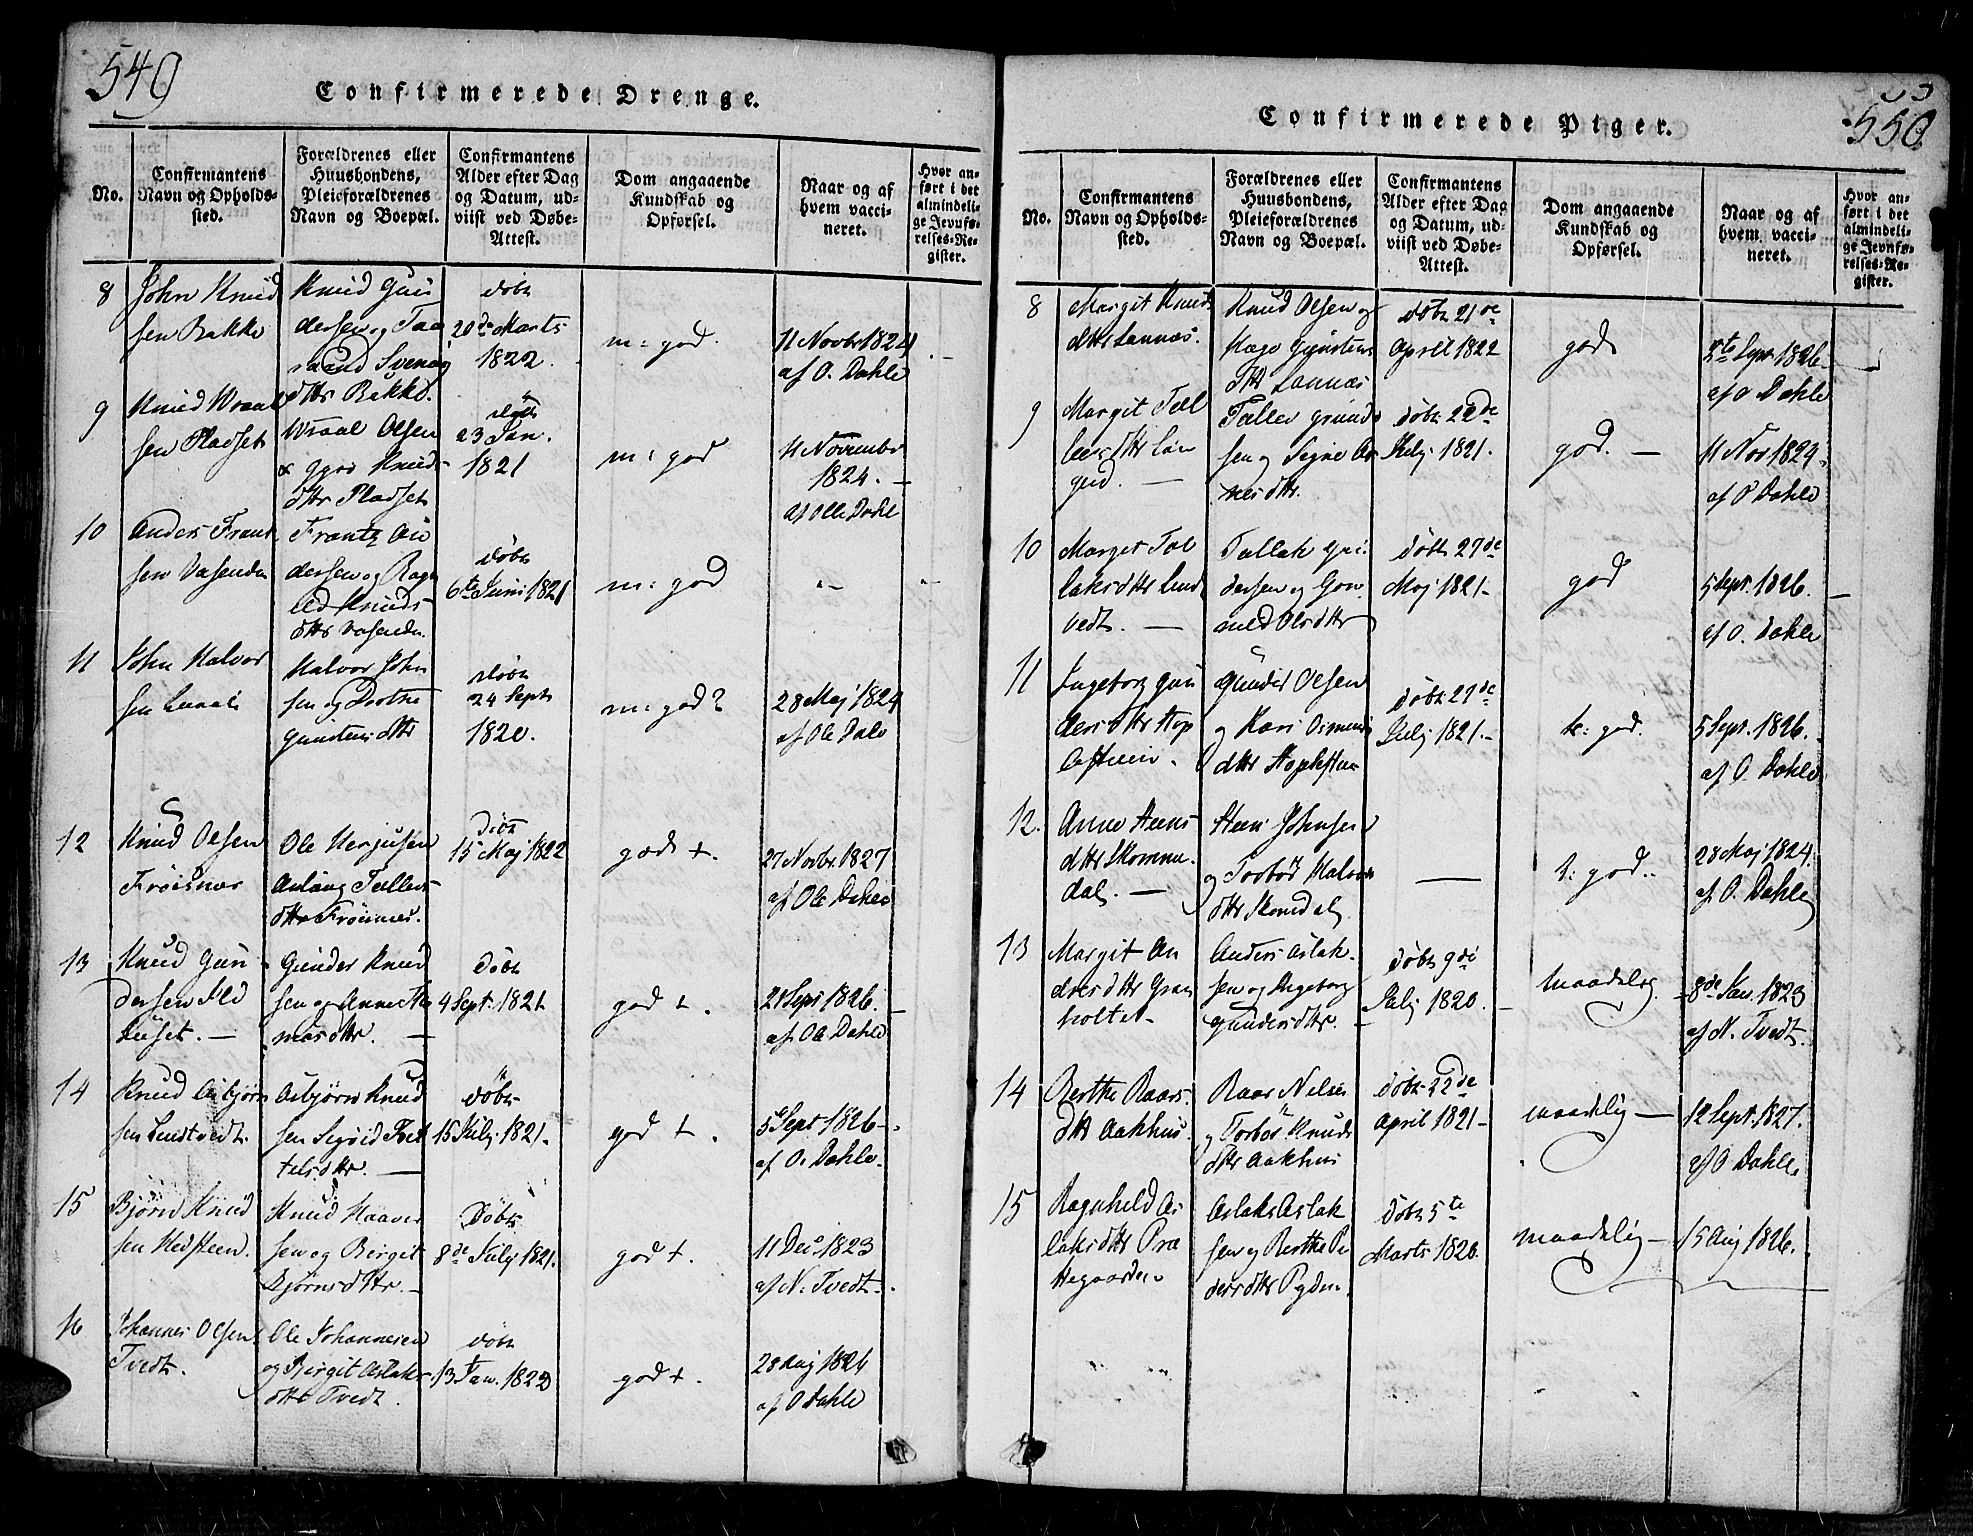 549
Confirmerede Drenge.
No.
Confirmantens
Navn og Opholds-
sted.
Forældrenes eller
Huusbondens,
Pleieforældrenes
Navn og Boepæl.
Confirmantens
Alder efter Dag
og Datum, ud-
viist ved Døbe-
Attest.
Dom angaaende
Kundskab og
Opførsel.
Naar og af
hvem vacci-
neret.
Hvor an-
ført i det
almindeli-
ge Jevnfø-
relses-Re-
gister.
8
John Knud
sen Bakke
Knud Gun
dersen og Taa
raand Svenog
dttr Bakke.
døbt
20de Marts
1822.
m: god.
11 Novbr 1824
af O. Dahle
9
Knud Wraal
sen Pladset
Wraal Olsen
Knuds-
dttr Pladset
døbt
23 Jan.
1821
m: god
11 November
1824. -
af Olle Dahl
10
Anders Frant
sen Vasenden
Frantz An
dersen og Ragn
ild Knuds-
dttr Vasenden
døbt
6te Juni 1821
m: god
11
John Halvor
sen
Halvor John
sen og Dorthe
Gunstensdttr
døbt
24 Sept
1820.
m: god?
28 Maj 1824
af Ole Dale
12
Knud Olsen
Frøisnæs
Ole Herjusen
Anlaug Tellevs
dttr Frøisnes.
Døbt
15 Maj 1822
god +.
27 Novbr. 1827
af Ole Dahle
13
Knud Gun
dersen
Gunder Knud
sen og Anne Tho
masdttr. -
Døbt
4 Sept. 1821
god +.
21 Sept 1826. -
af Ole Dahle
14
Knud Asbjørn
sen Lundtvedt.
Asbjørn Knud
sen Sigrid Tvet
telsdttr. -
døbt
15 Julj 1821.
god +.
5 Sept 1826 -
af O. Dahle.
15
Bjørn Knud
sen Hedsteen.
Knud Haavor
sen og Birgit
Bjørnsdttr. -
Døbt
8de Julij 1821.
god +.
11 Dec 1823
af N. Tvedt.
16
Johannes Olsen
Tvedt.
Ole Johannesen
og Birgit Aslaks-
dttr Tvedt.
døbt
13 Jan. 1822
god +.
28 Aug 1824
af O Dahle
550
Confirmerede Piger.
No.
Confirmantens
Navn og Opholds-
sted.
Forældrenes eller
Huusbondens,
Pleieforældrenes
Navn og Boepæl.
Confirmantens
Alder efter Dag
og Datum, ud-
viist ved Døbe-
Attest.
Dom angaaende
Kundskab og
Opførsel.
Naar og af
hvem vacci-
neret.
Hvor an-
ført i det
almindeli-
ge Jevnfø-
relses-Re-
gister.
8
Margit Knuds
dttr Lannæs.
Knud Olsen og
Kage Gunstens
dttr Lannæs
døbt 21de
April 1822
god
5te Sept 1826
af O Dahle
9
Margit Tell
Tallev Gunds
sen og Signe Ar
nesdttr.
døbt 22de
Julj 1821.
god. -
11 Nov 1824.
af O Dahle
10
Marget Tal
laksdttr Lund
vedt. -
Tallak Gun
dersen og Gun
nild Olsdttr
døbt 27de
Maj 1821 -
god
5 Sept. 1826.
af O. Dahle
11
Ingeborg Gun
dersdttr
Gunder Olsen
og Kari Osmunds
dttr
døbt 27de
Julj 1821. -
t: god.
5 Sept. 1826.
af O. Dahle
12.
Anne Steens
dttr Skomme
dal. -
Steen Johnsen
og Torbor Halvors
dttr Skomdal
t: god.
28 Maj 1824.
af O. Dahle
13
Margit An
dersdttr Gran
holtet
Anders Aslak-
sen og Ingeborg
Gundersdttr. -
døbt 9de
Julj 1820. -
maadelig.
8de Jan. 1823
af N. Tvedt.
14
Berthe Roars-
dtt Aakhus.
Roar Nilsen
og Torbør Knuds
dttr Aakhus
døbt 22de
April 1821 -
maadelig -
12 Sept. 1827.
af O Dahle
15
Ragnhild As
laksdttr Præ
stegaarden
Aslak Aslak
sen og Berthe Pe
dersdttr
døbt 5te
Marts 1820.
maadelig -
15 Aug 1826.